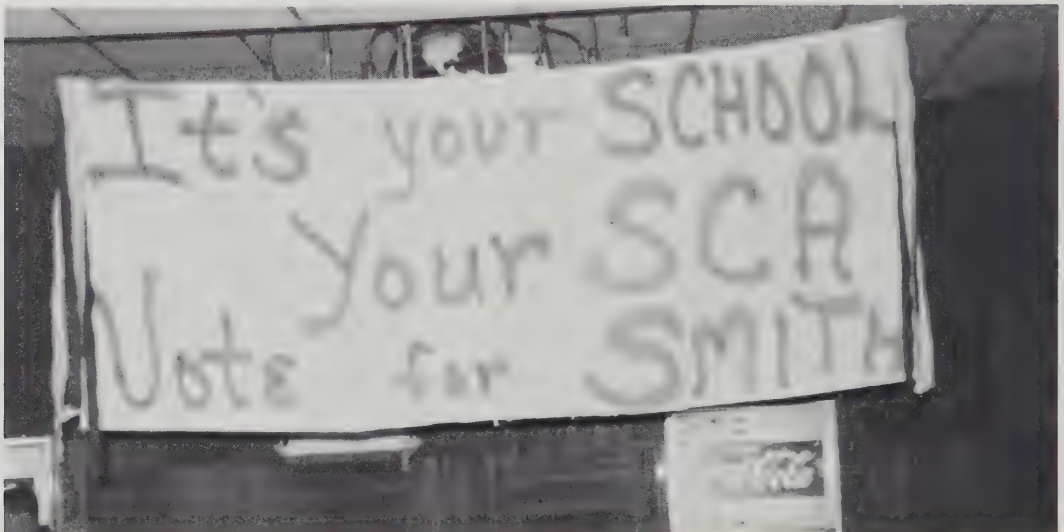 It's your SCHOOL
Your SCA
Vote for SMITH